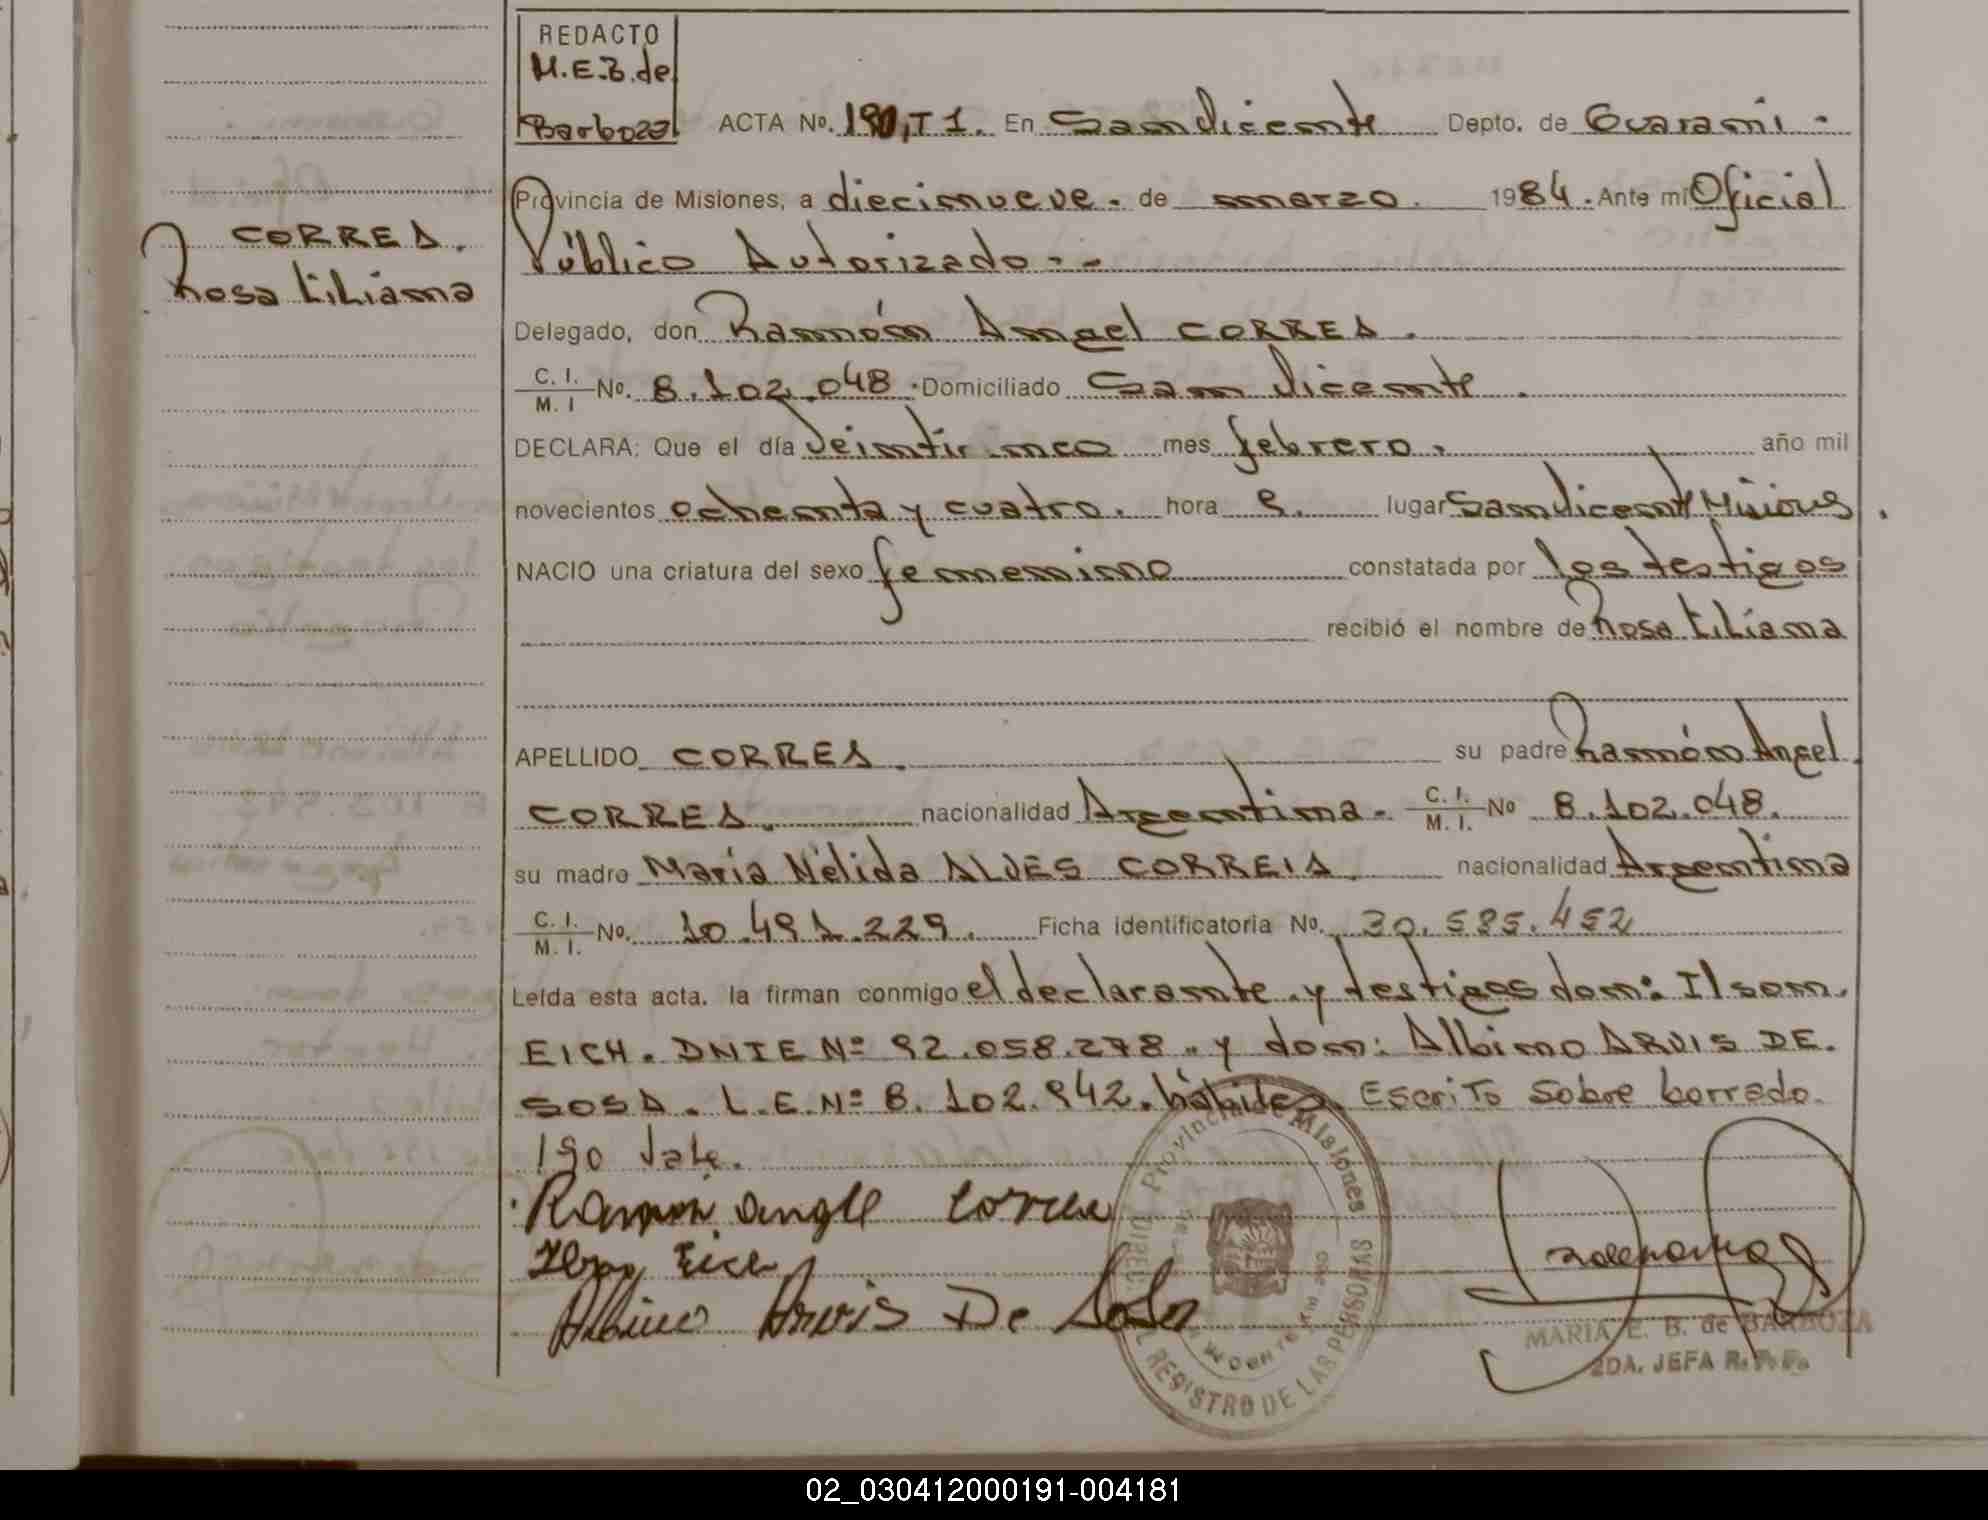 REDACTO
M.E.B. de
Barboza
ACTA No. 190, T 1. En San Vicente Depto. de Guarani.
Provincia de Misiones, a diecinueve. de marzo. 1984. Ante mí Oficial
Público Autorizado. -
CORREA.
Rosa Liliana
Delegado, don Ramón Angel CORREA.
C. I. / M. I No. 8.102.048. Domiciliado San Vicente.
DECLARA: Que el día mes febrero. año mil
novecientos ochenta y cuatro. hora lugar San Vicente Misiones.
NACIO una criatura del sexo femenino constatada por los testigos
recibió el nombre de Rosa Liliana
APELLIDO CORREA. su padre Ramón Angel
CORREA. nacionalidad Argentina. C. I. / M. I. No 8.102.048.
su madre María Nélida ALVES CORREIA. nacionalidad Argentina
C. I. / M. I. No. 10.491.229. Ficha identificatoria No. 30.585.452
Leída esta acta, la firman conmigo el declarante y testigos don: Ilson.
EICH. DNIE Nº 92.058.278. y don: Albino ARVIS DE.
SOSA. L.E. Nº 8.102.942. hábiles. Escrito sobre borrado.
190 Vale.
Ramon angel Correa
Ilson Eich
Albino Arvis De
Provincia de Misiones
REGISTRO DE LAS PERSONAS
MARIA E. B. de BARBOZA
2DA. JEFA R.P.P.
02_030412000191-004181